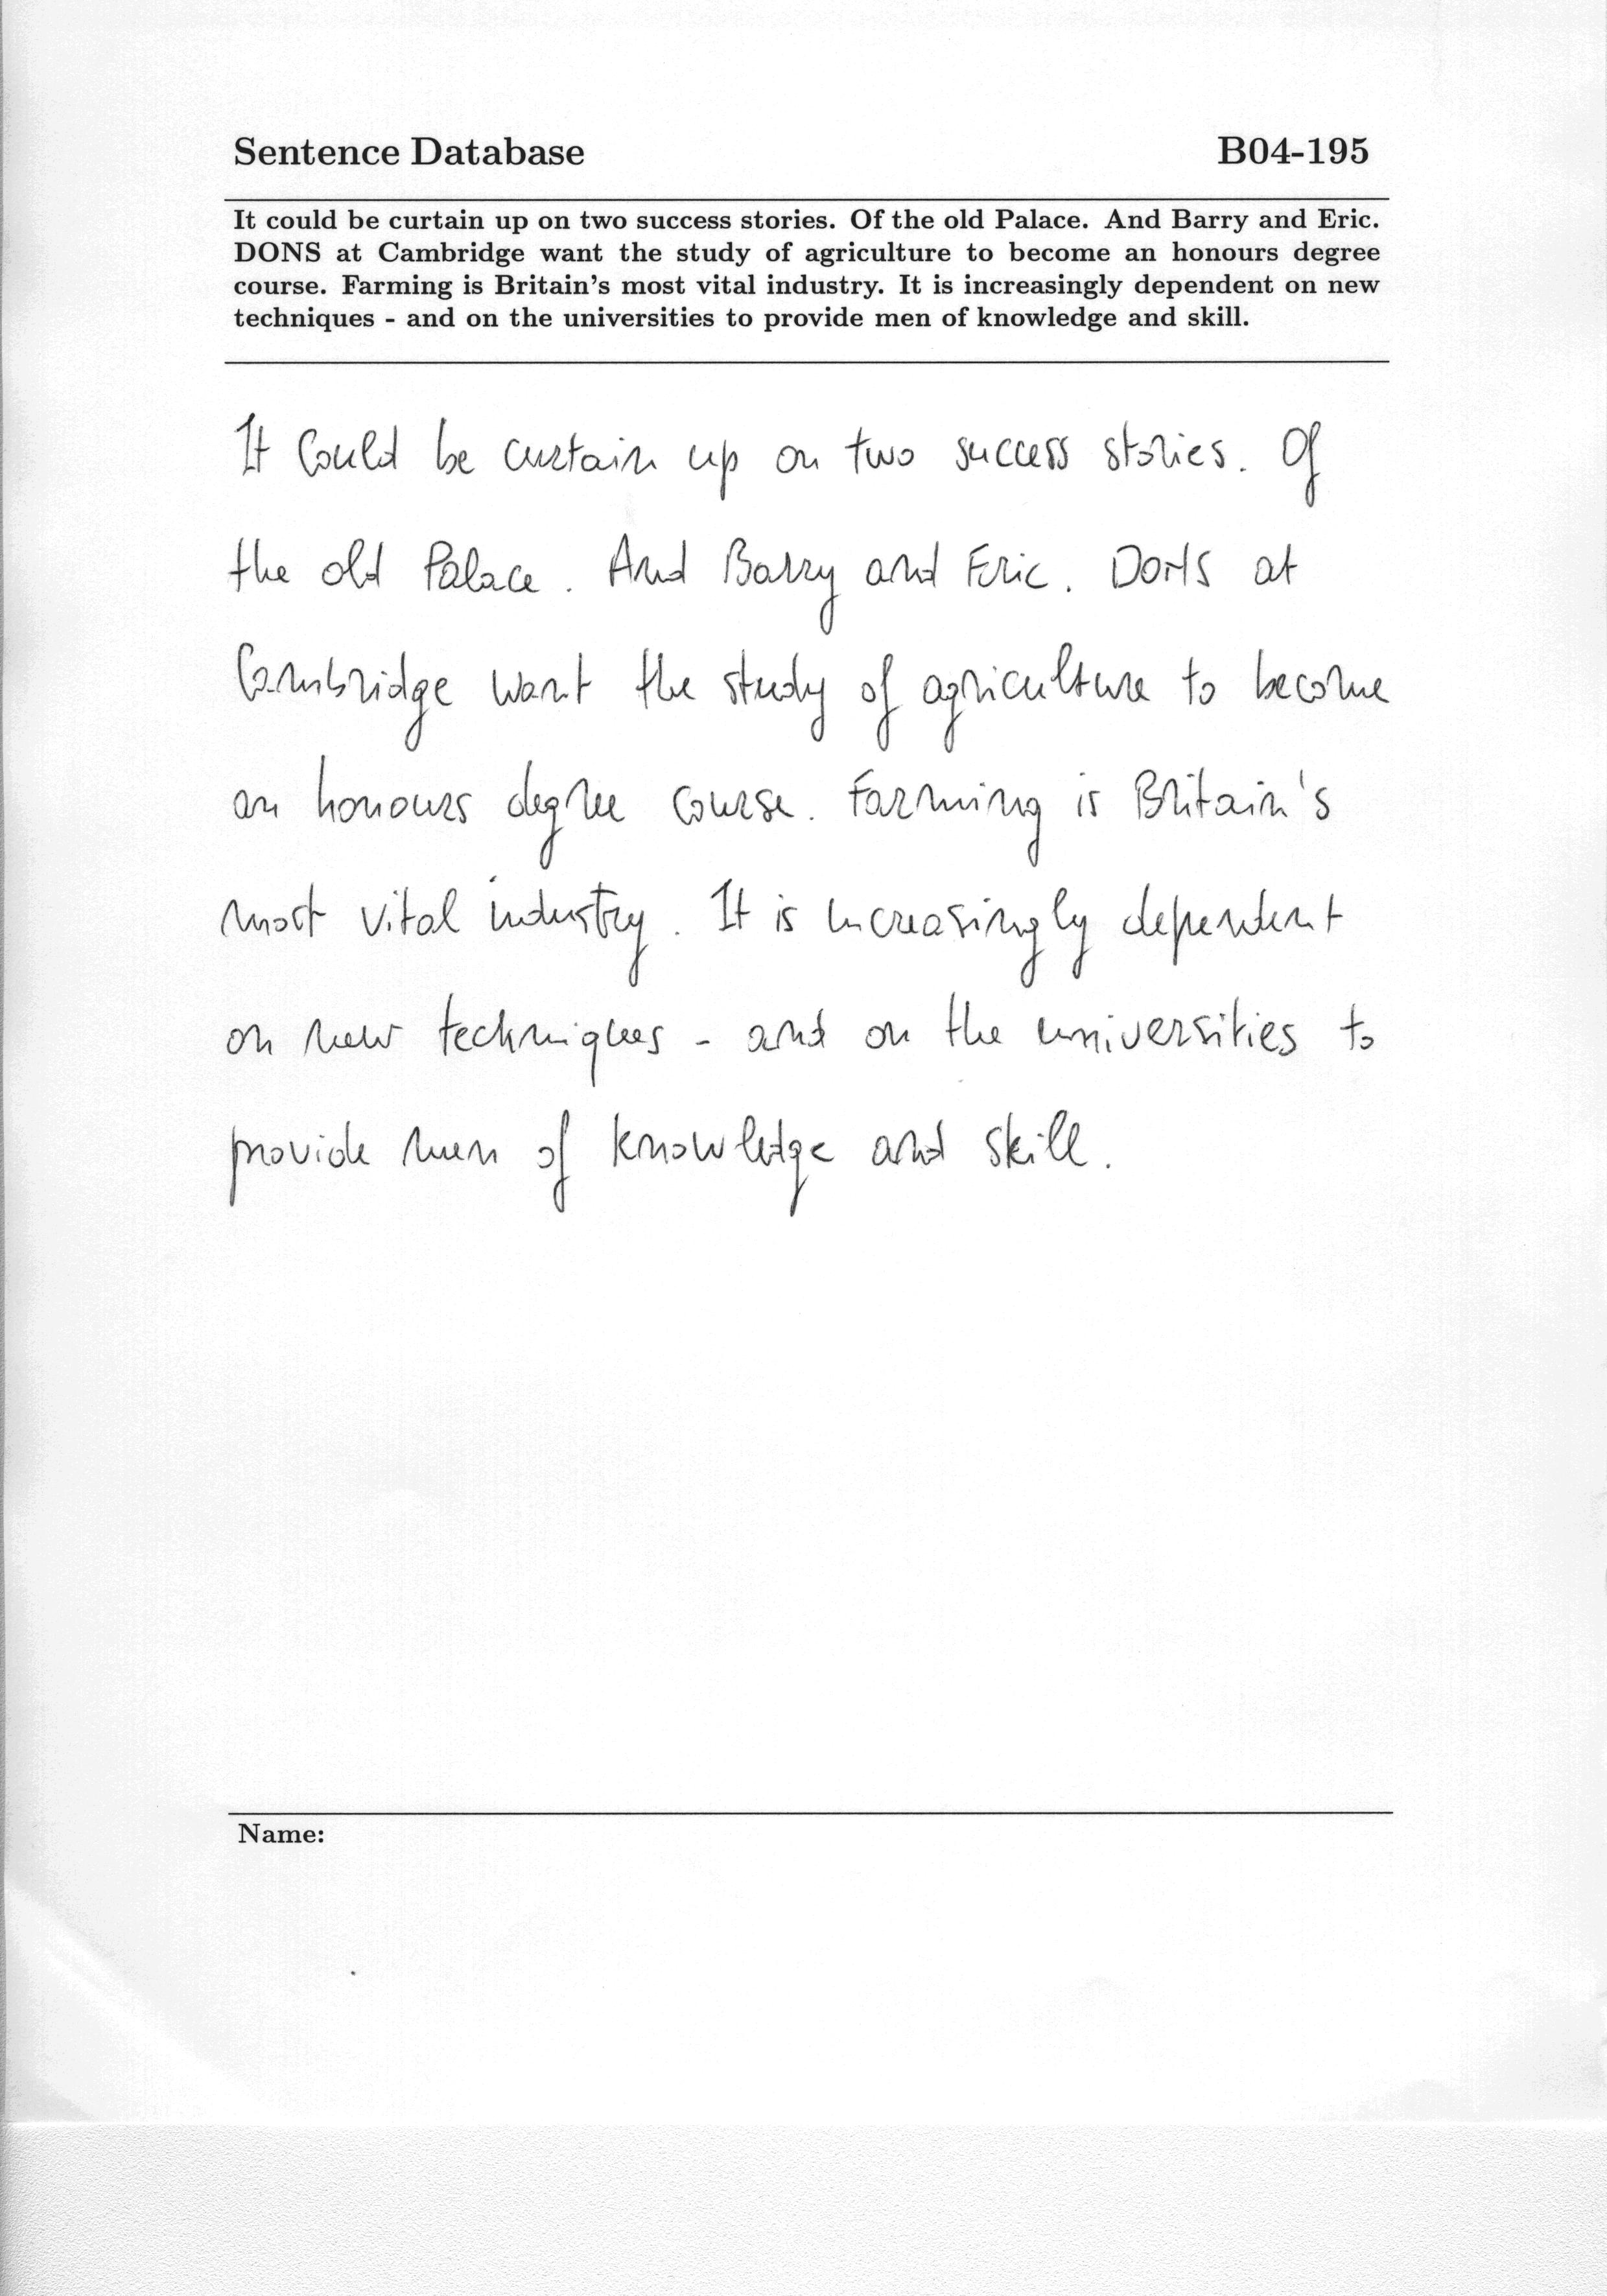 Sentence Database B04-195
It could be curtain up on two success stories. Of the old Palace. And Barry and Eric.
DONS at Cambridge want the study of agriculture to become an honours degree
course. Farming is Britain's most vital industry. It is increasingly dependent on new
techniques - and on the universities to provide men of knowledge and skill.
It could be curtain up on two success stories. Of
the old Palace. And Barry and Eric. DONS at
Cambridge want the study of agriculture to become
an honours degree course. Farming is Britain's
most vital industry. It is increasingly dependent
on new techniques - and on the universities to
provide men of knowledge and skill.
Name: